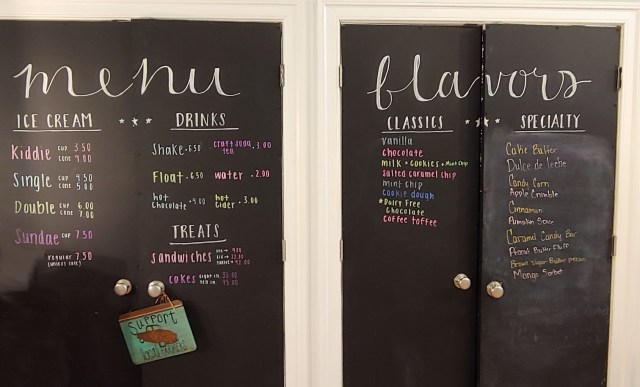 menu
ICE CREAM
Kiddie cup 3.50
cone 4.00
Single cup 4.50
cone 5.00
Double cup 6.00
cone 7.00
Sundae cup 7.50
regular 7.50
DRINKS
Shake .6.50
craft soda
tea .3.00
Float .6.50
water .2.00
hot
chocolate
hot
cider .3.00
TREATS
sandwiches
cakes
Support
local farmers
flavors
CLASSICS
vanilla
chocolate
milk + cookies + Mint Chip
salted caramel chip
mint chip
cookie dough
*Dairy Free
Chocolate
coffee toffee
SPECIALTY
Cake Batter
Dulce de leche
Candy Corn
Apple Crumble
Cinnamon
Pumpkin Sour
Caramel Candy Bar
Peanut Butter Fluff
Brown Sugar Butter pecan
Mango Sorbet